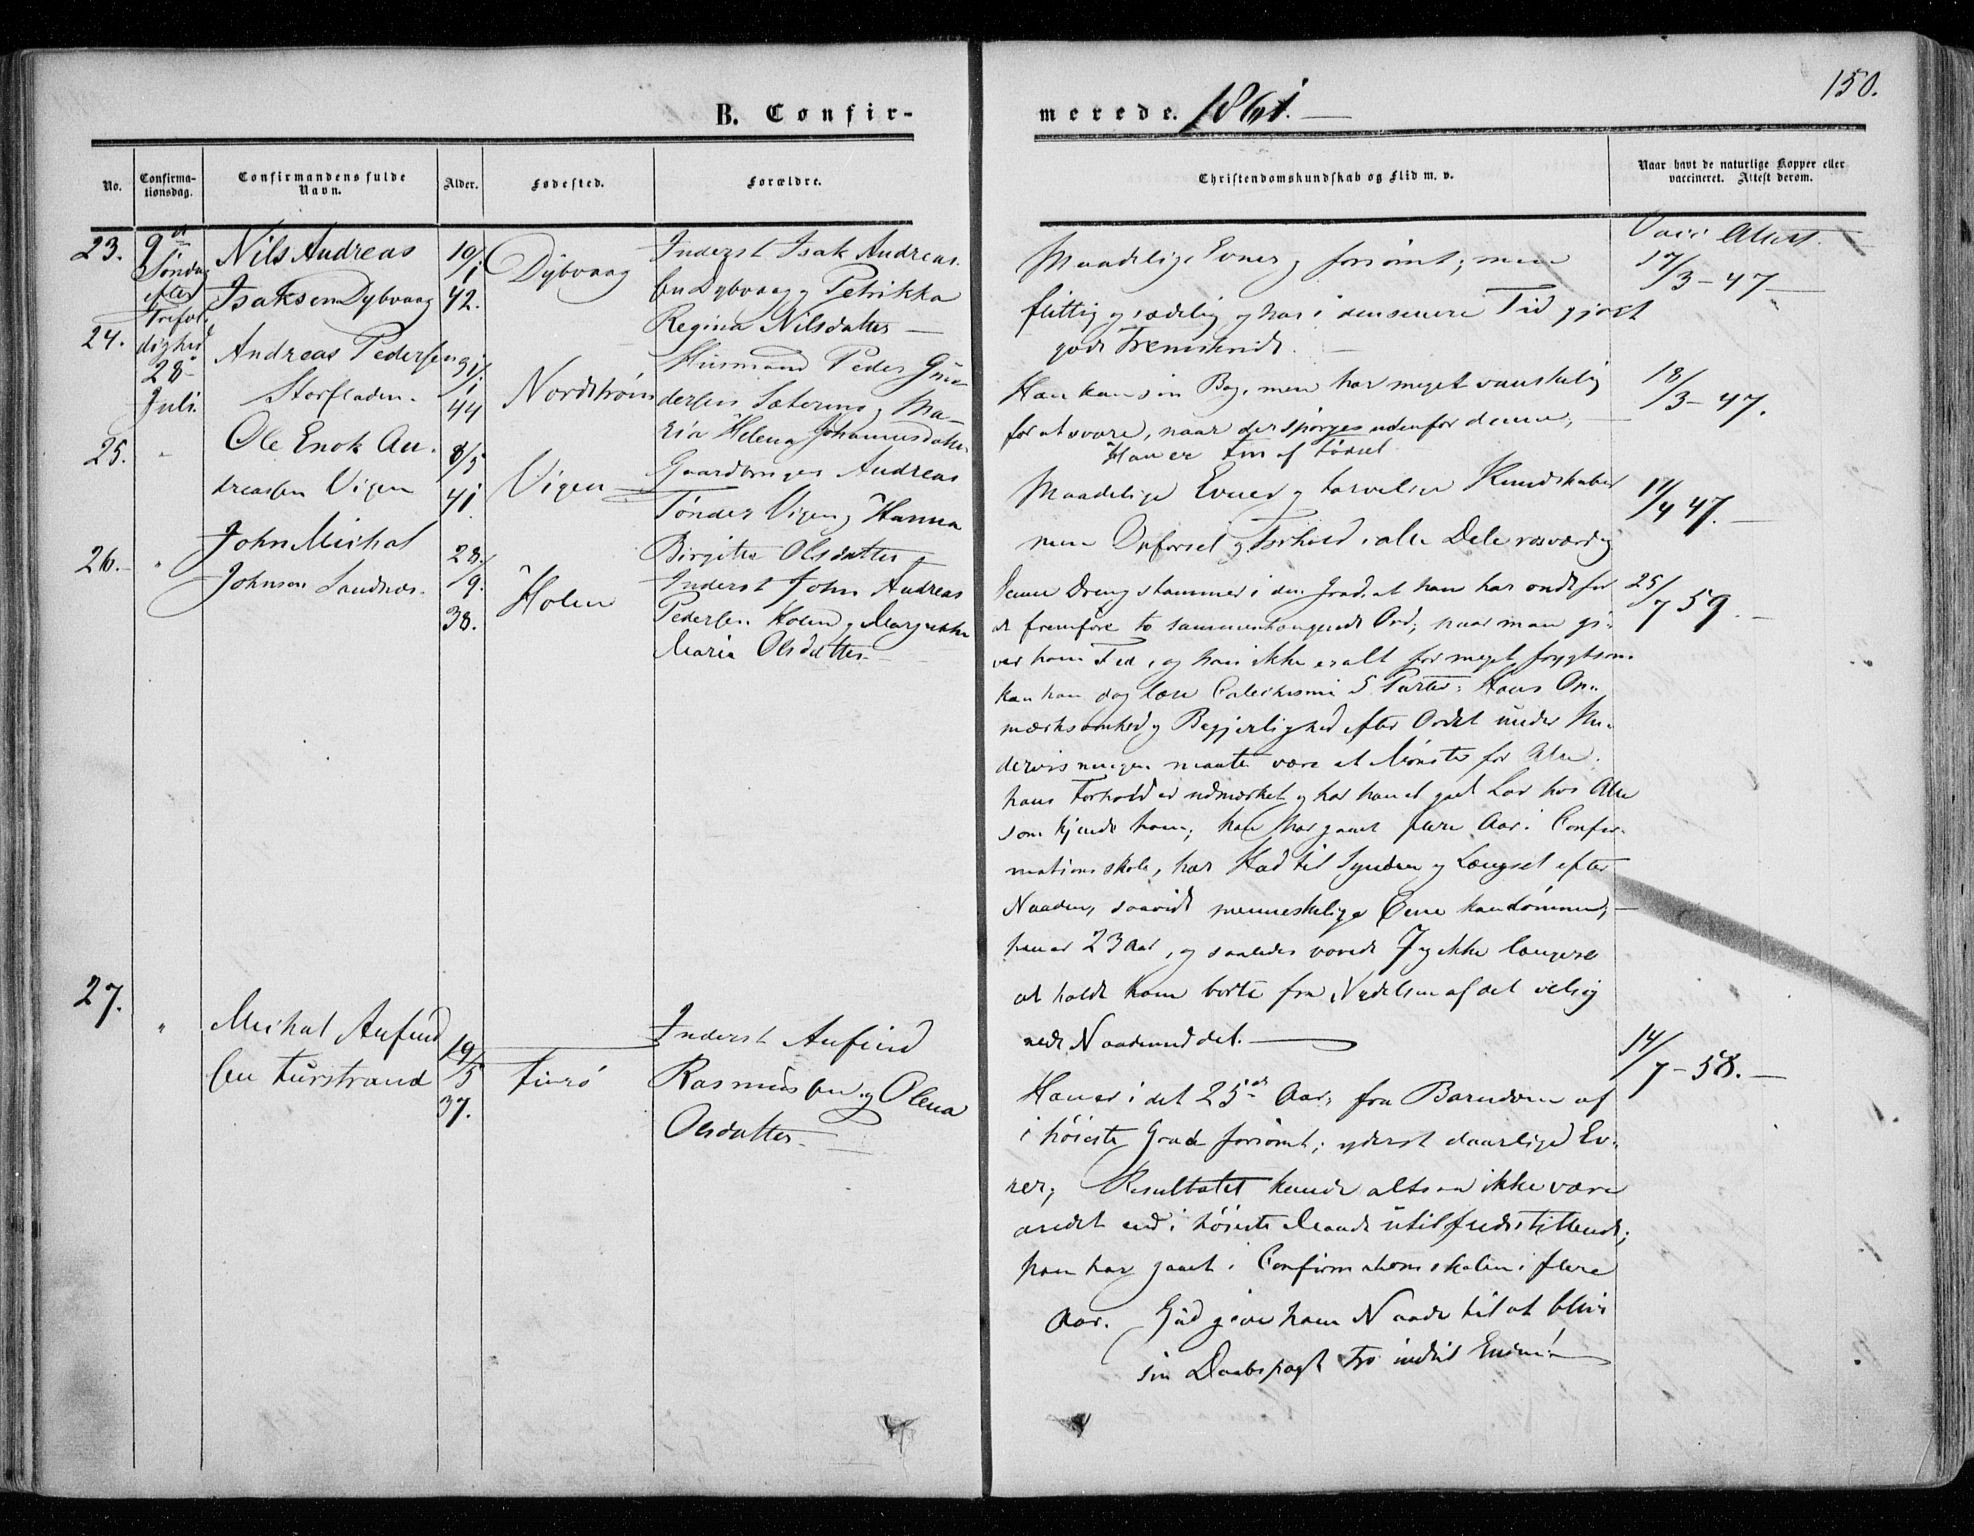 150.
B. Confir-
merede. 1861.
No.
Confirma-
tionsdag.
Confirmandens fulde
Navn.
Alder.
Fødested.
Forældre.
Christendomskundskab og Flid m. v.
Naar havt de naturlige Kopper eller
vaccineret. Attest derom.
23.
9de
Søndag
efter
Trefol-
dighed
28
Juli.
Nils Andreas
Isaksen Dybvaag
19/1
42.
Dybvaag
Inderst Isak Andreas-
sen Dybvaag, Petrikka
Regina Nilsdatter
Maadelige Evner og forsømt; men
flittig og sædelig og har i den senere Tid gjort
gode Fremskridt.
Vacc Attest.
17/3-47-
24.
Andreas Pedersen
Storfladen.
21/1
44
Nordstrøm
Husmand Peder Gun-
dersen Sæterens, Ma-
ria Helena Johannesdatter
Han kan sin Bog, men har meget vanskelig
for at svare, naar der spørges udenfor denne,
Han er Fin af Fødsel
18/3-47.
25.
Ole Enok An-
dreassen Vigen
8/5
41
Vigen
Gaardbruger Andreas
Tønder Vigen, Hanna
Birgitte Olsdatter
Maadelige Evner og tarvelige Kundskaber
men Opførsel og Forhold i alle Dele rosværdig
17/4 47.-
26.
"
John Michal
Johnsen Sandnes.
28/9.
38.
Holm
Inderst John Andreas
Pedersen Holm, Margrethe
Maria Olsdatter
Denne Dreng stammer i den Grad, at han har ondt for
at fremføre to sammenhængende Ord; naar man gi-
ver ham Tid, og han ikke er alt for meget frygtsom
kan han dog læse Catechismi 5 Parter. Hans Op-
mærksomhed og Begjerlighed efter Ordet under Un-
dervisningen maatte være et Mønster for Alle.
hans Forhold er udmærket og har han et godt Lov hos Alle
som kjende ham; han har gaaet flere Aar i Confir-
mationsskole, har Had til Synden og Længsel efter
Naaden, saavidt menneskelige Øine kan dømme;
han er 23 Aar, og saaledes vovede Jeg ikke længere
at holde ham borte fra Nydelsen af det velsig
nede Naademiddel.
25/7 59.-
27.
"
Michal Anfind
sen Furstrand
19/5
37.
Inderst Anfind
Rasmussen og Olena
Olsdatter
Han er i det 25de Aar, fra Barndom af
i høieste Grad forsømt; yderst daarlige Ev-
ner; Resultatet kunde altsaa ikke være
andet end i høieste Maade utilfredsstillende;
han har gaaet i Confirmationsskolen i flere
Aar. Gud give ham Naade til at blive
sin Daabspagt tro indtil Enden!
14/7-58.-